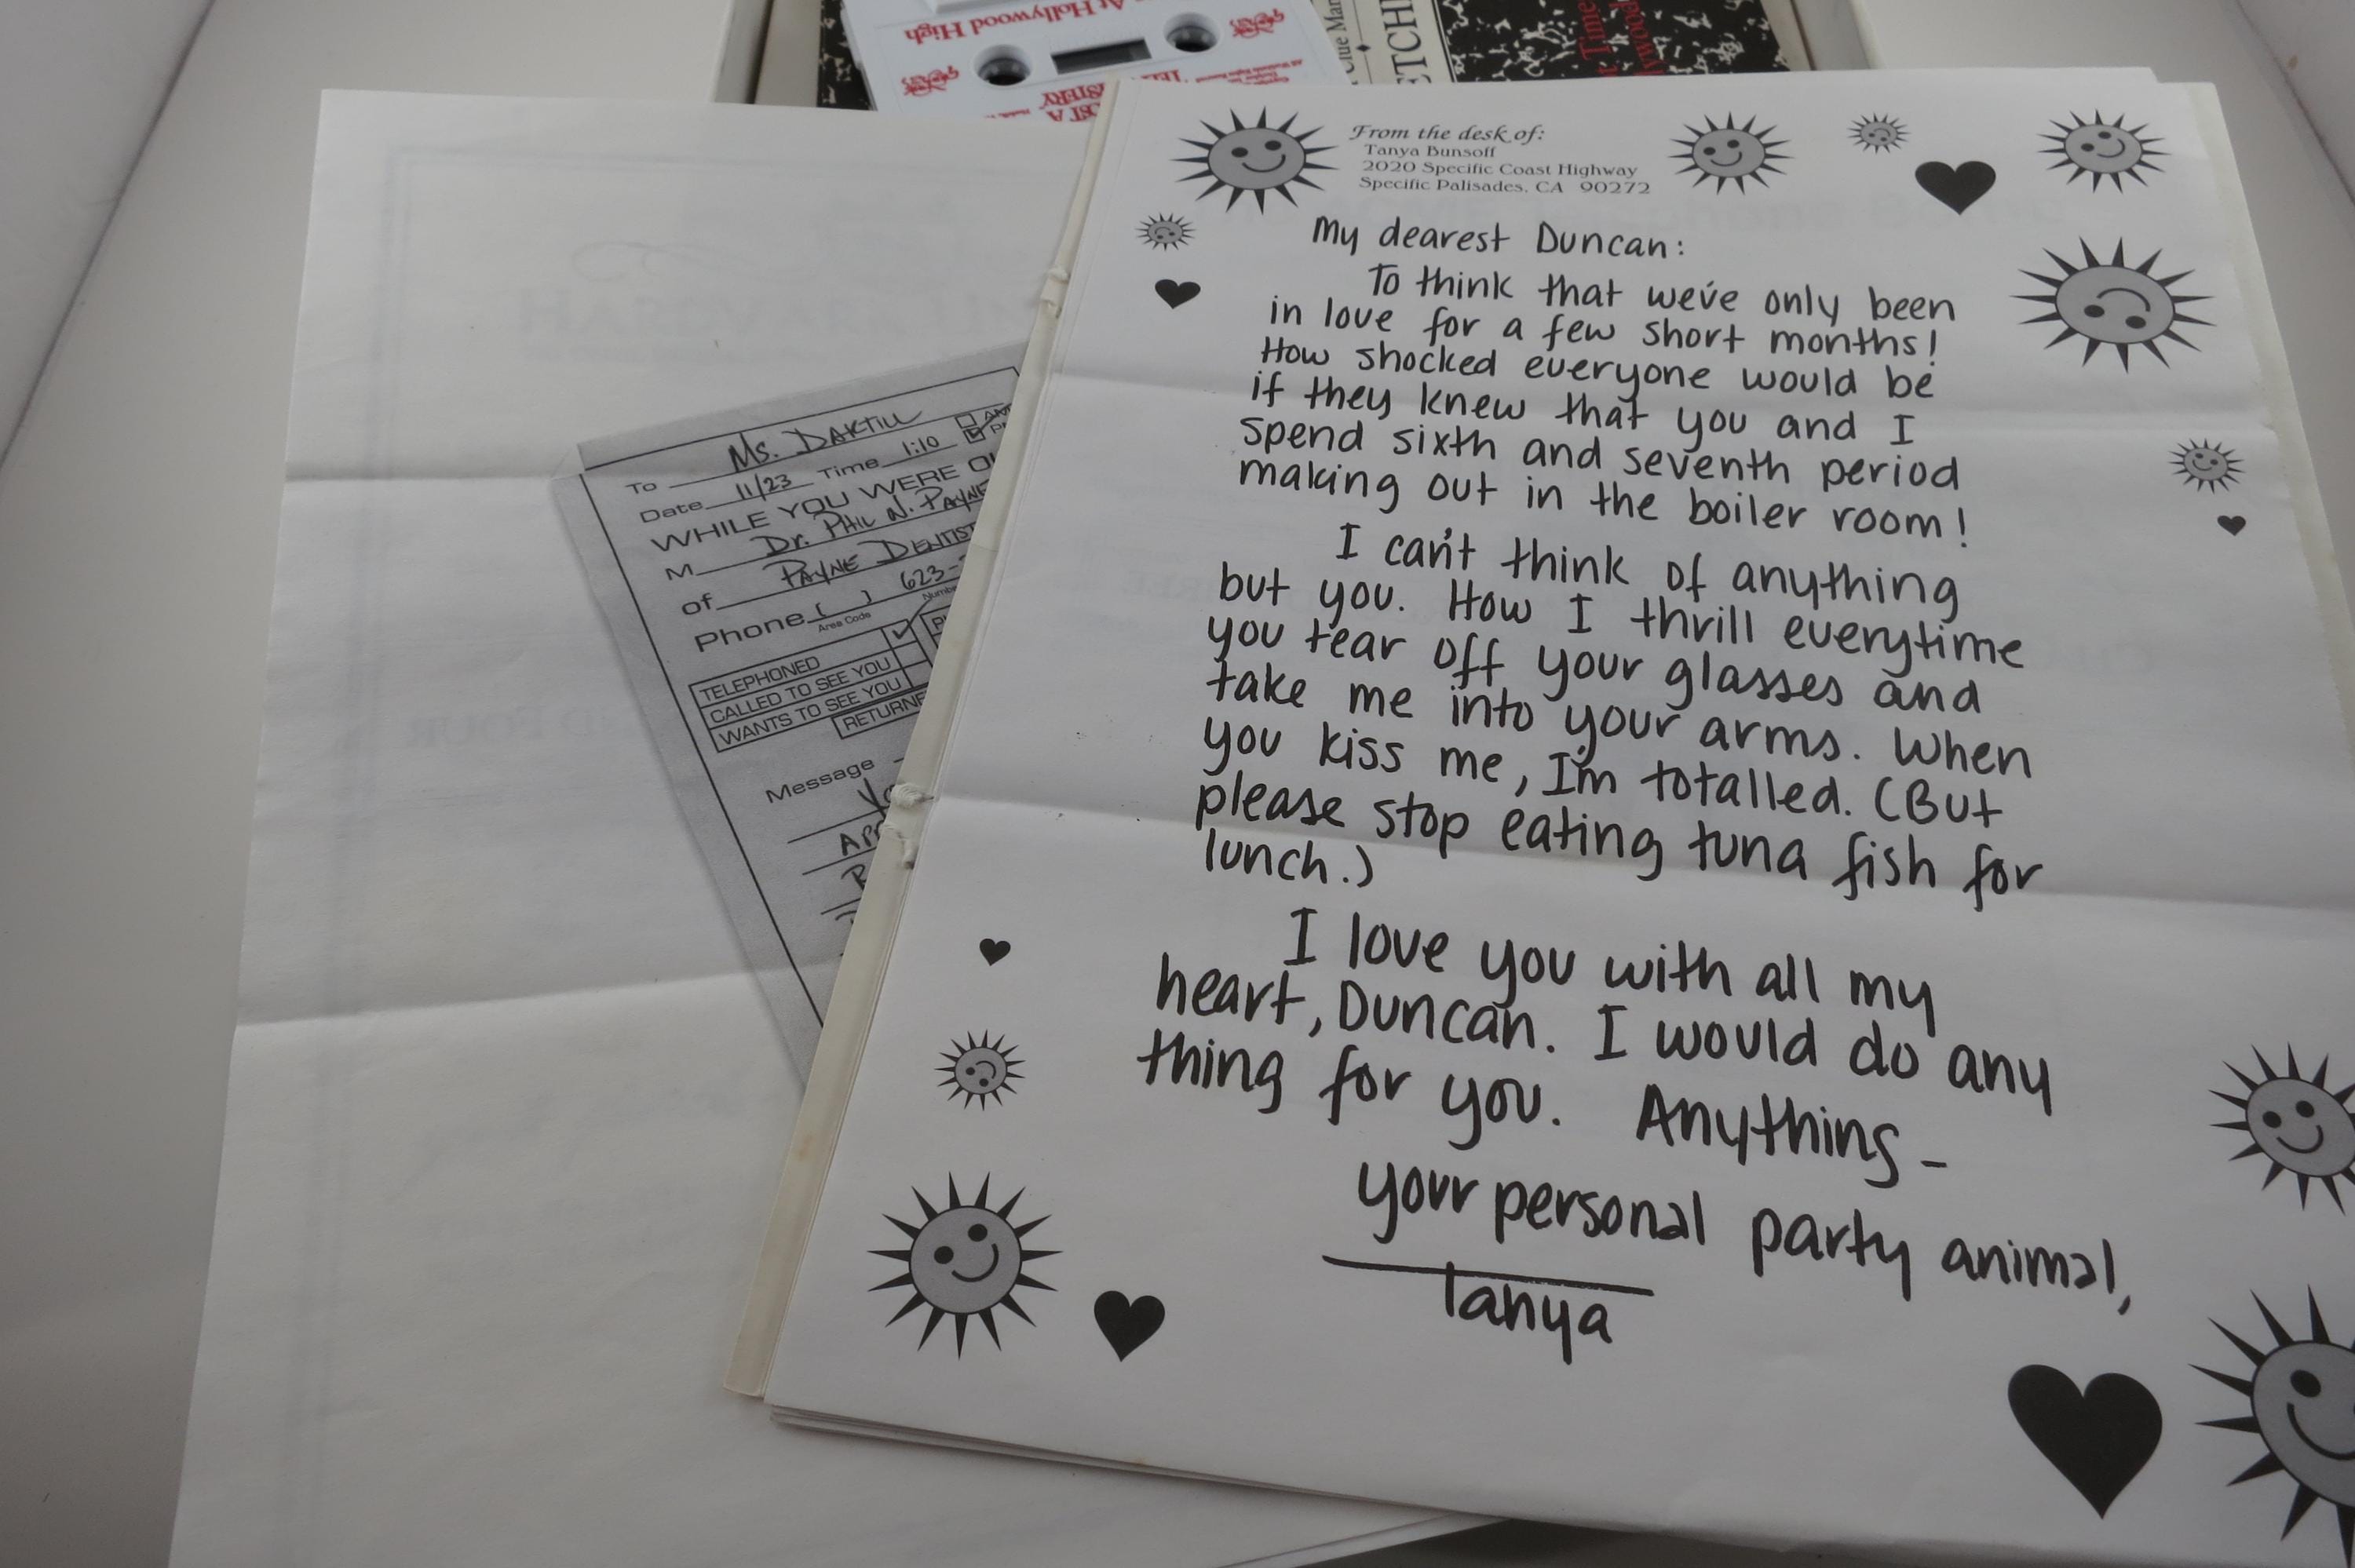 At Hollywood High
From the desk of:
Tanya Bunsoff
2020 Specific Coast Highway
Specific Palisades, CA 90272
My dearest Duncan:
To think that we've only been
in love for a few short months!
How shocked everyone would be
if they knew that you and I
spend sixth and seventh period
making out in the boiler room!
I can't think of anything
but you. How I thrill everytime
you tear off your glasses and
take me into your arms. When
you kiss me, I'm totalled. (But
please stop eating tuna fish for
lunch.)
I love you with all my
heart, Duncan. I would do any
thing for you. Anything -
your personal party animal,
Tanya
To Ms. Daktill
Date 11/23 Time 1:10
WHILE YOU WERE
M Dr. Phil N. Payne
of Payne Dentist
Phone ( ) 623-
Area Code
TELEPHONED
CALLED TO SEE YOU
WANTS TO SEE YOU
Message